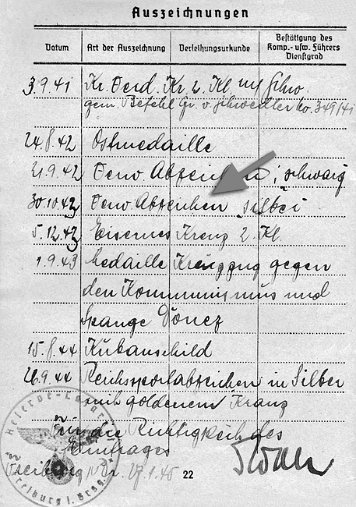 Auszeichnungen
Datum Art der Auszeichnung Verleihungsurkunde Bestätigung des Komp.- usw. Führers Dienstgrad
3.9.41 Kr. Verd. Kr. 2. Kl. mit Schw.
gem. Befehl Gr. v. Schwedler No. 349/41
24.8.42 Ostmedaille
21.9.42 Verw. Abzeichen i. schwarz
30.10.42 Verw. Abzeichen silber
5.12.42 Eisernes Kreuz 2. Kl.
1.9.43 Medaille Kreuzzug gegen
den Kommunismus und
Spange Donez
15.8.44 Kubanschild
26.9.44 Reichssportabzeichen in Silber
mit goldenem Kranz
Für die Richtigkeit des
Eintrages
Freiburg
22